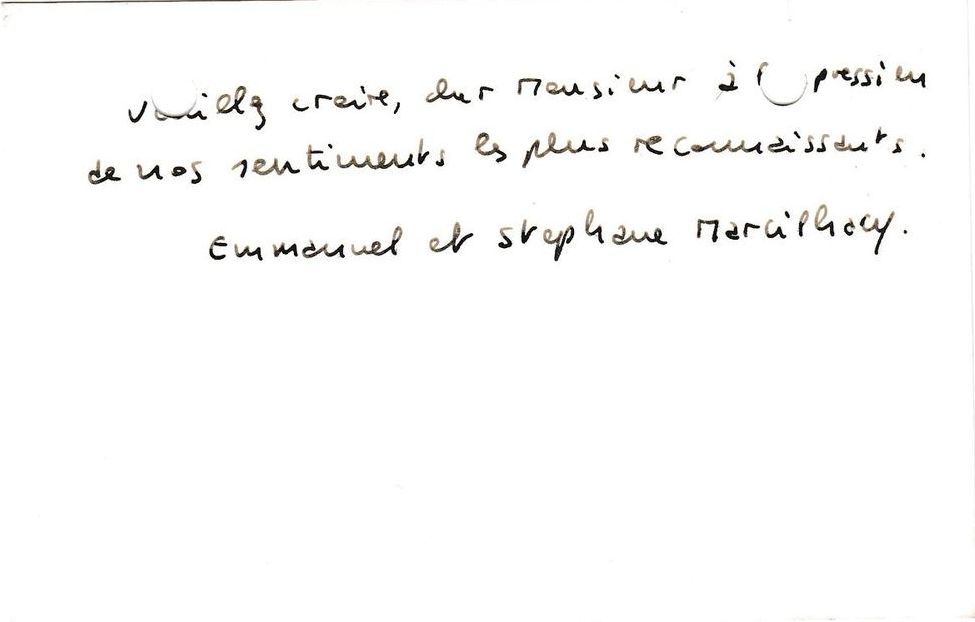 Veuillez croire, cher Monsieur à l'expression
de nos sentiments les plus reconnaissants.
Emmanuel et Stephane Marcilhacy.